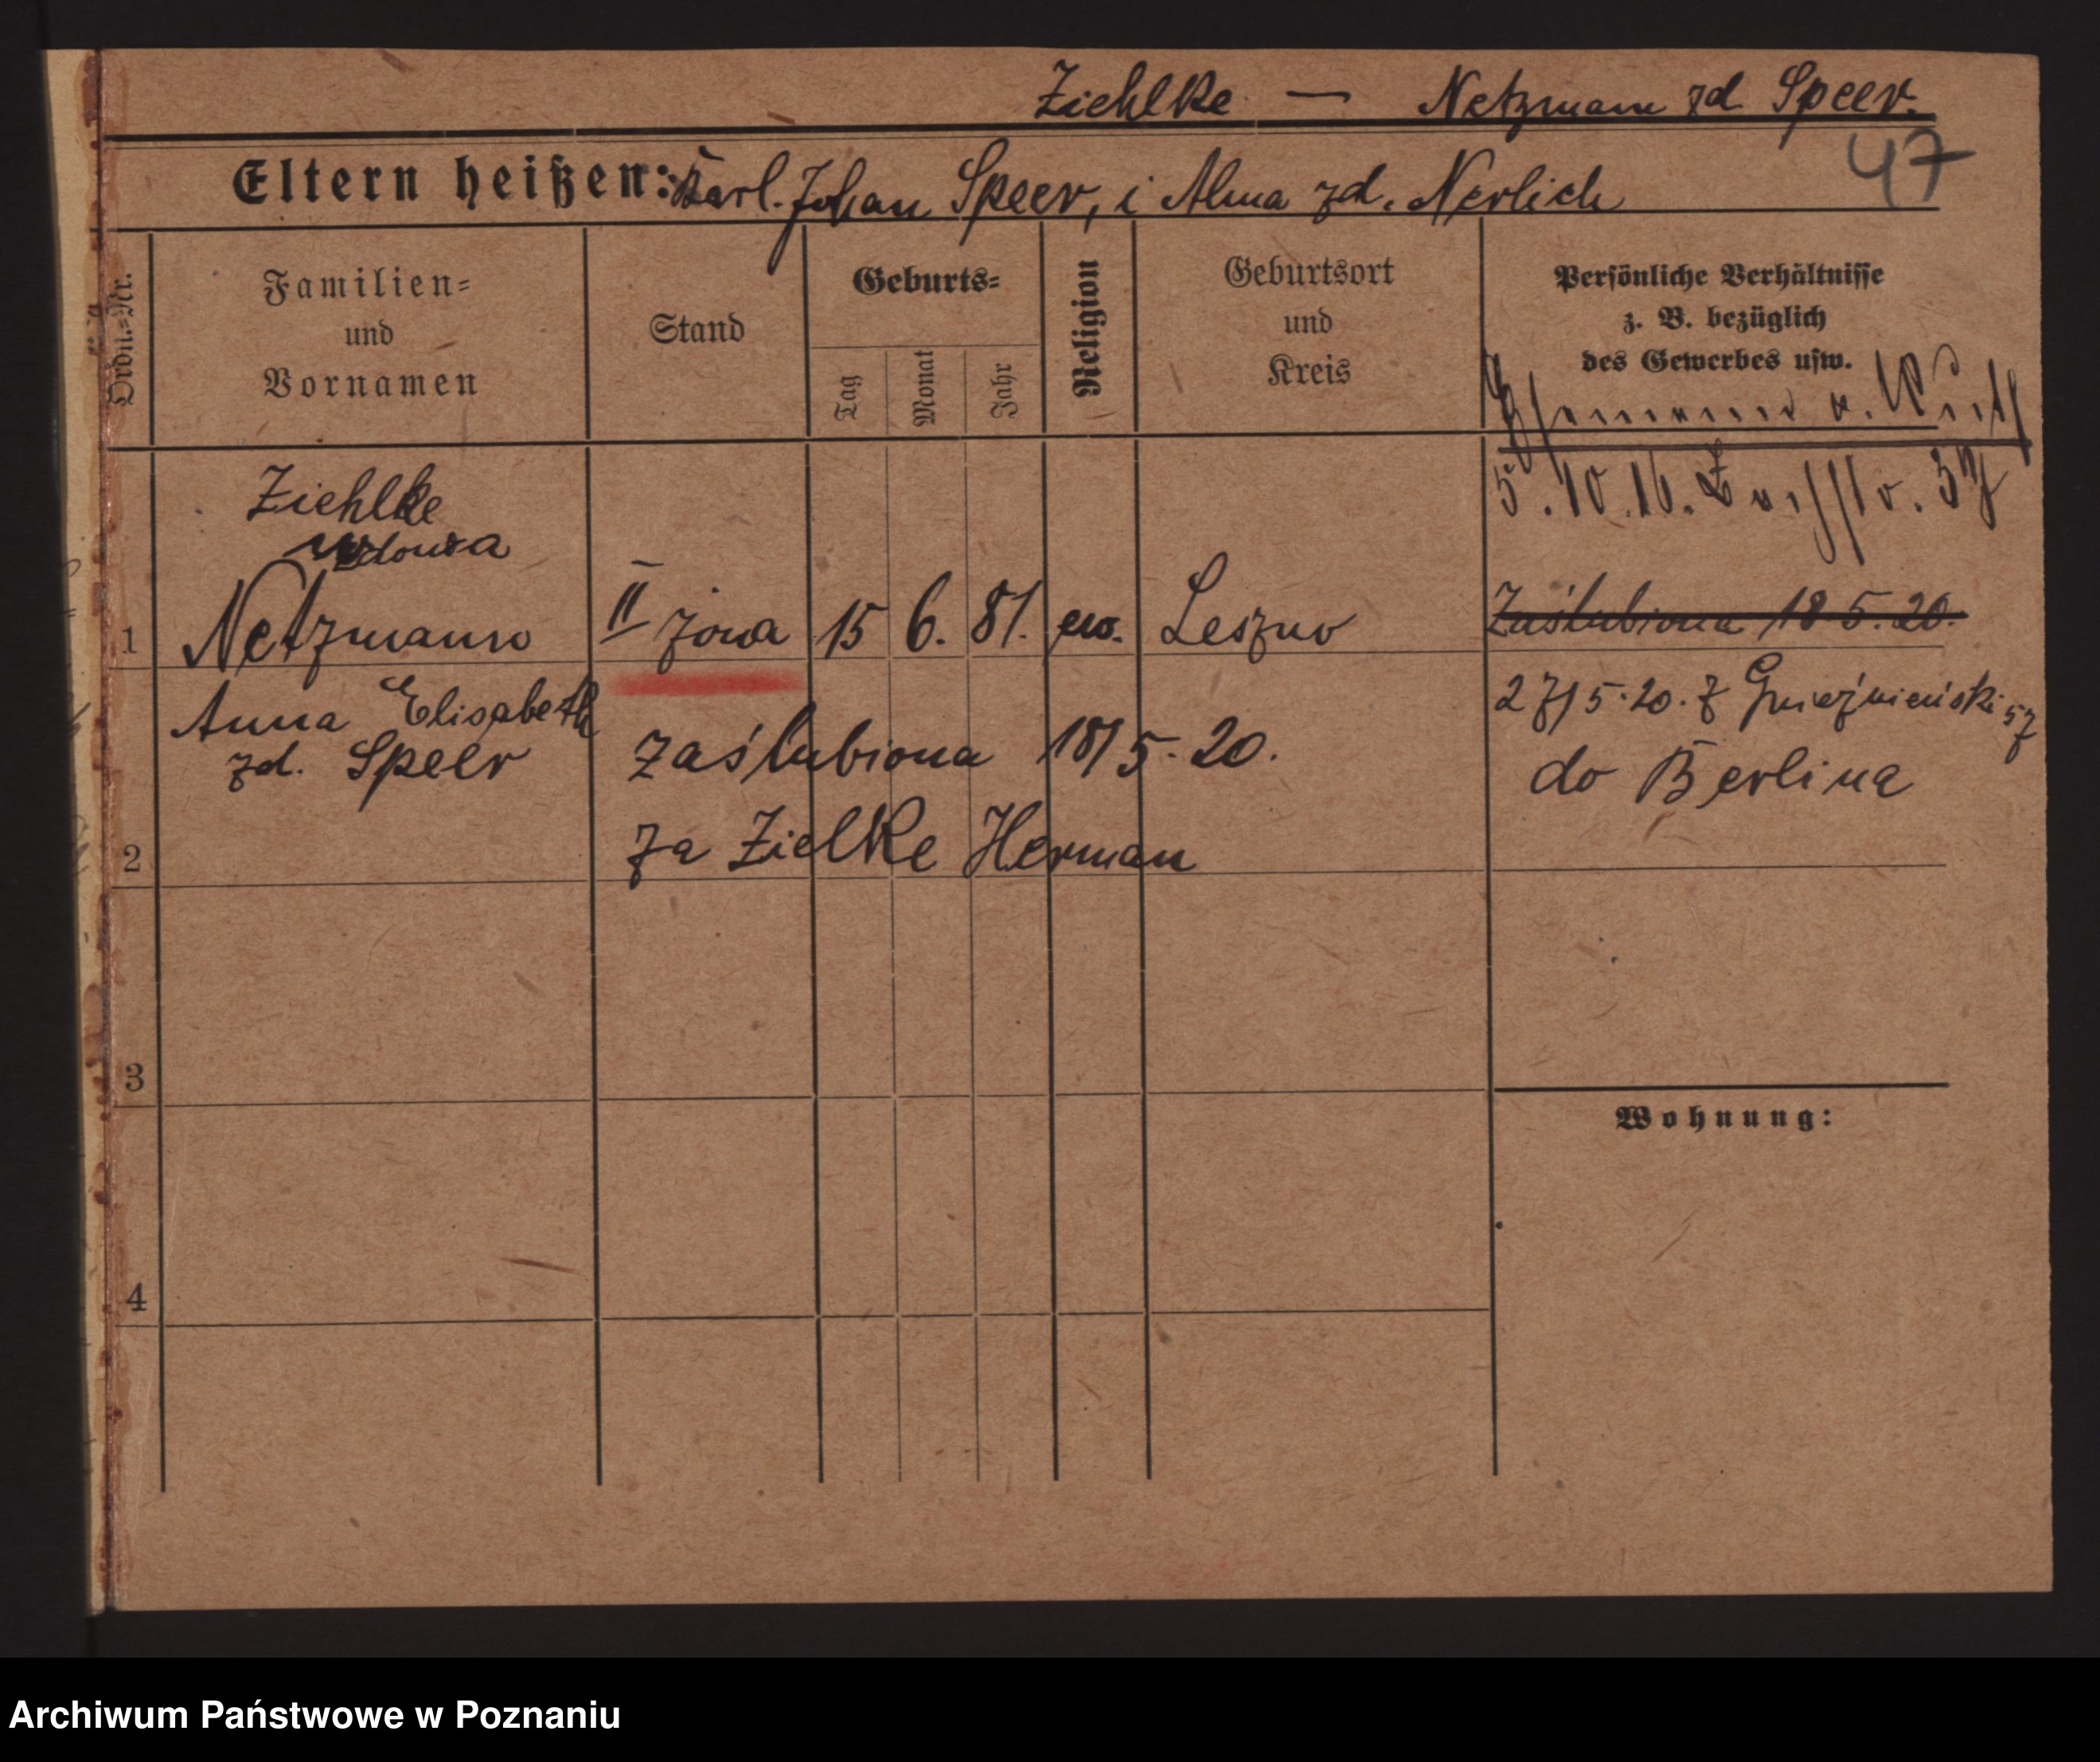 Ziehlke — Netzmann zd Speer.
47
Eltern heißen: Karl. Johan Speer, i Alma zd. Nerlich
Ordn.=Nr.
Familien=
und
Vornamen
Stand
Geburts=
Tag
Monat
Jahr
Religion
Geburtsort
und
Kreis
Persönliche Verhältnisse
z. B. bezüglich
des Gewerbes usw.
5.10.16. 37
Ziehlke
wdowa
1 Netzmann II żona 15 6. 81. ew. Leszno
Zaślubiona 18.5.20.
Anna Elisabeth
27/5.20. z Gnieźnieński 57
zd. Speer
zaślubiona 18/5.20.
do Berlina
2
za Zielke Herman
3
Wohnung:
4
Archiwum Państwowe w Poznaniu